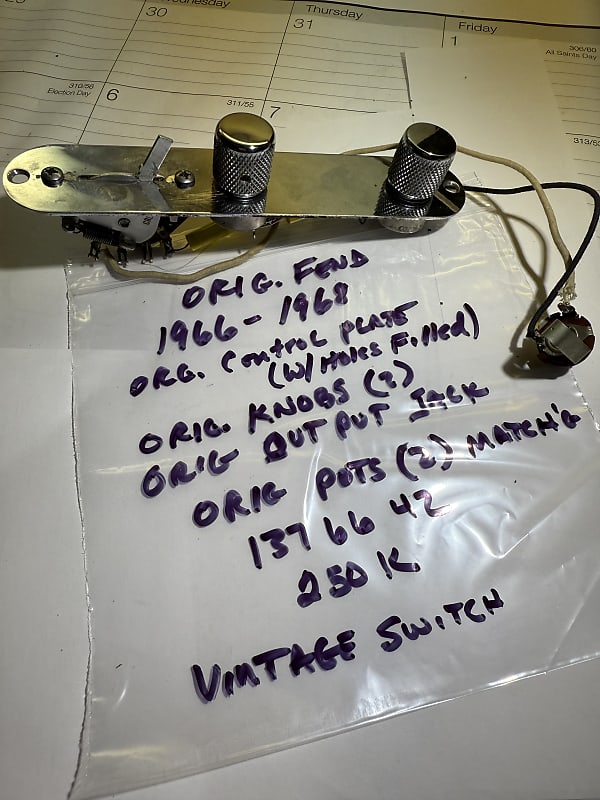 29
Wednesday
30
Thursday
31
Friday
1
306/60
All Saints Day
310/56
Election Day
6
311/55
7
313/53
ORIG. FEND
1966 - 1968
ORG. CONTROL PLATE
(W/ Holes Filled)
ORIG. KNOBS (2)
ORIG OUTPUT JACK
ORIG POTS (2) MATCH'G
137 66 42
250 K
VINTAGE SWITCH